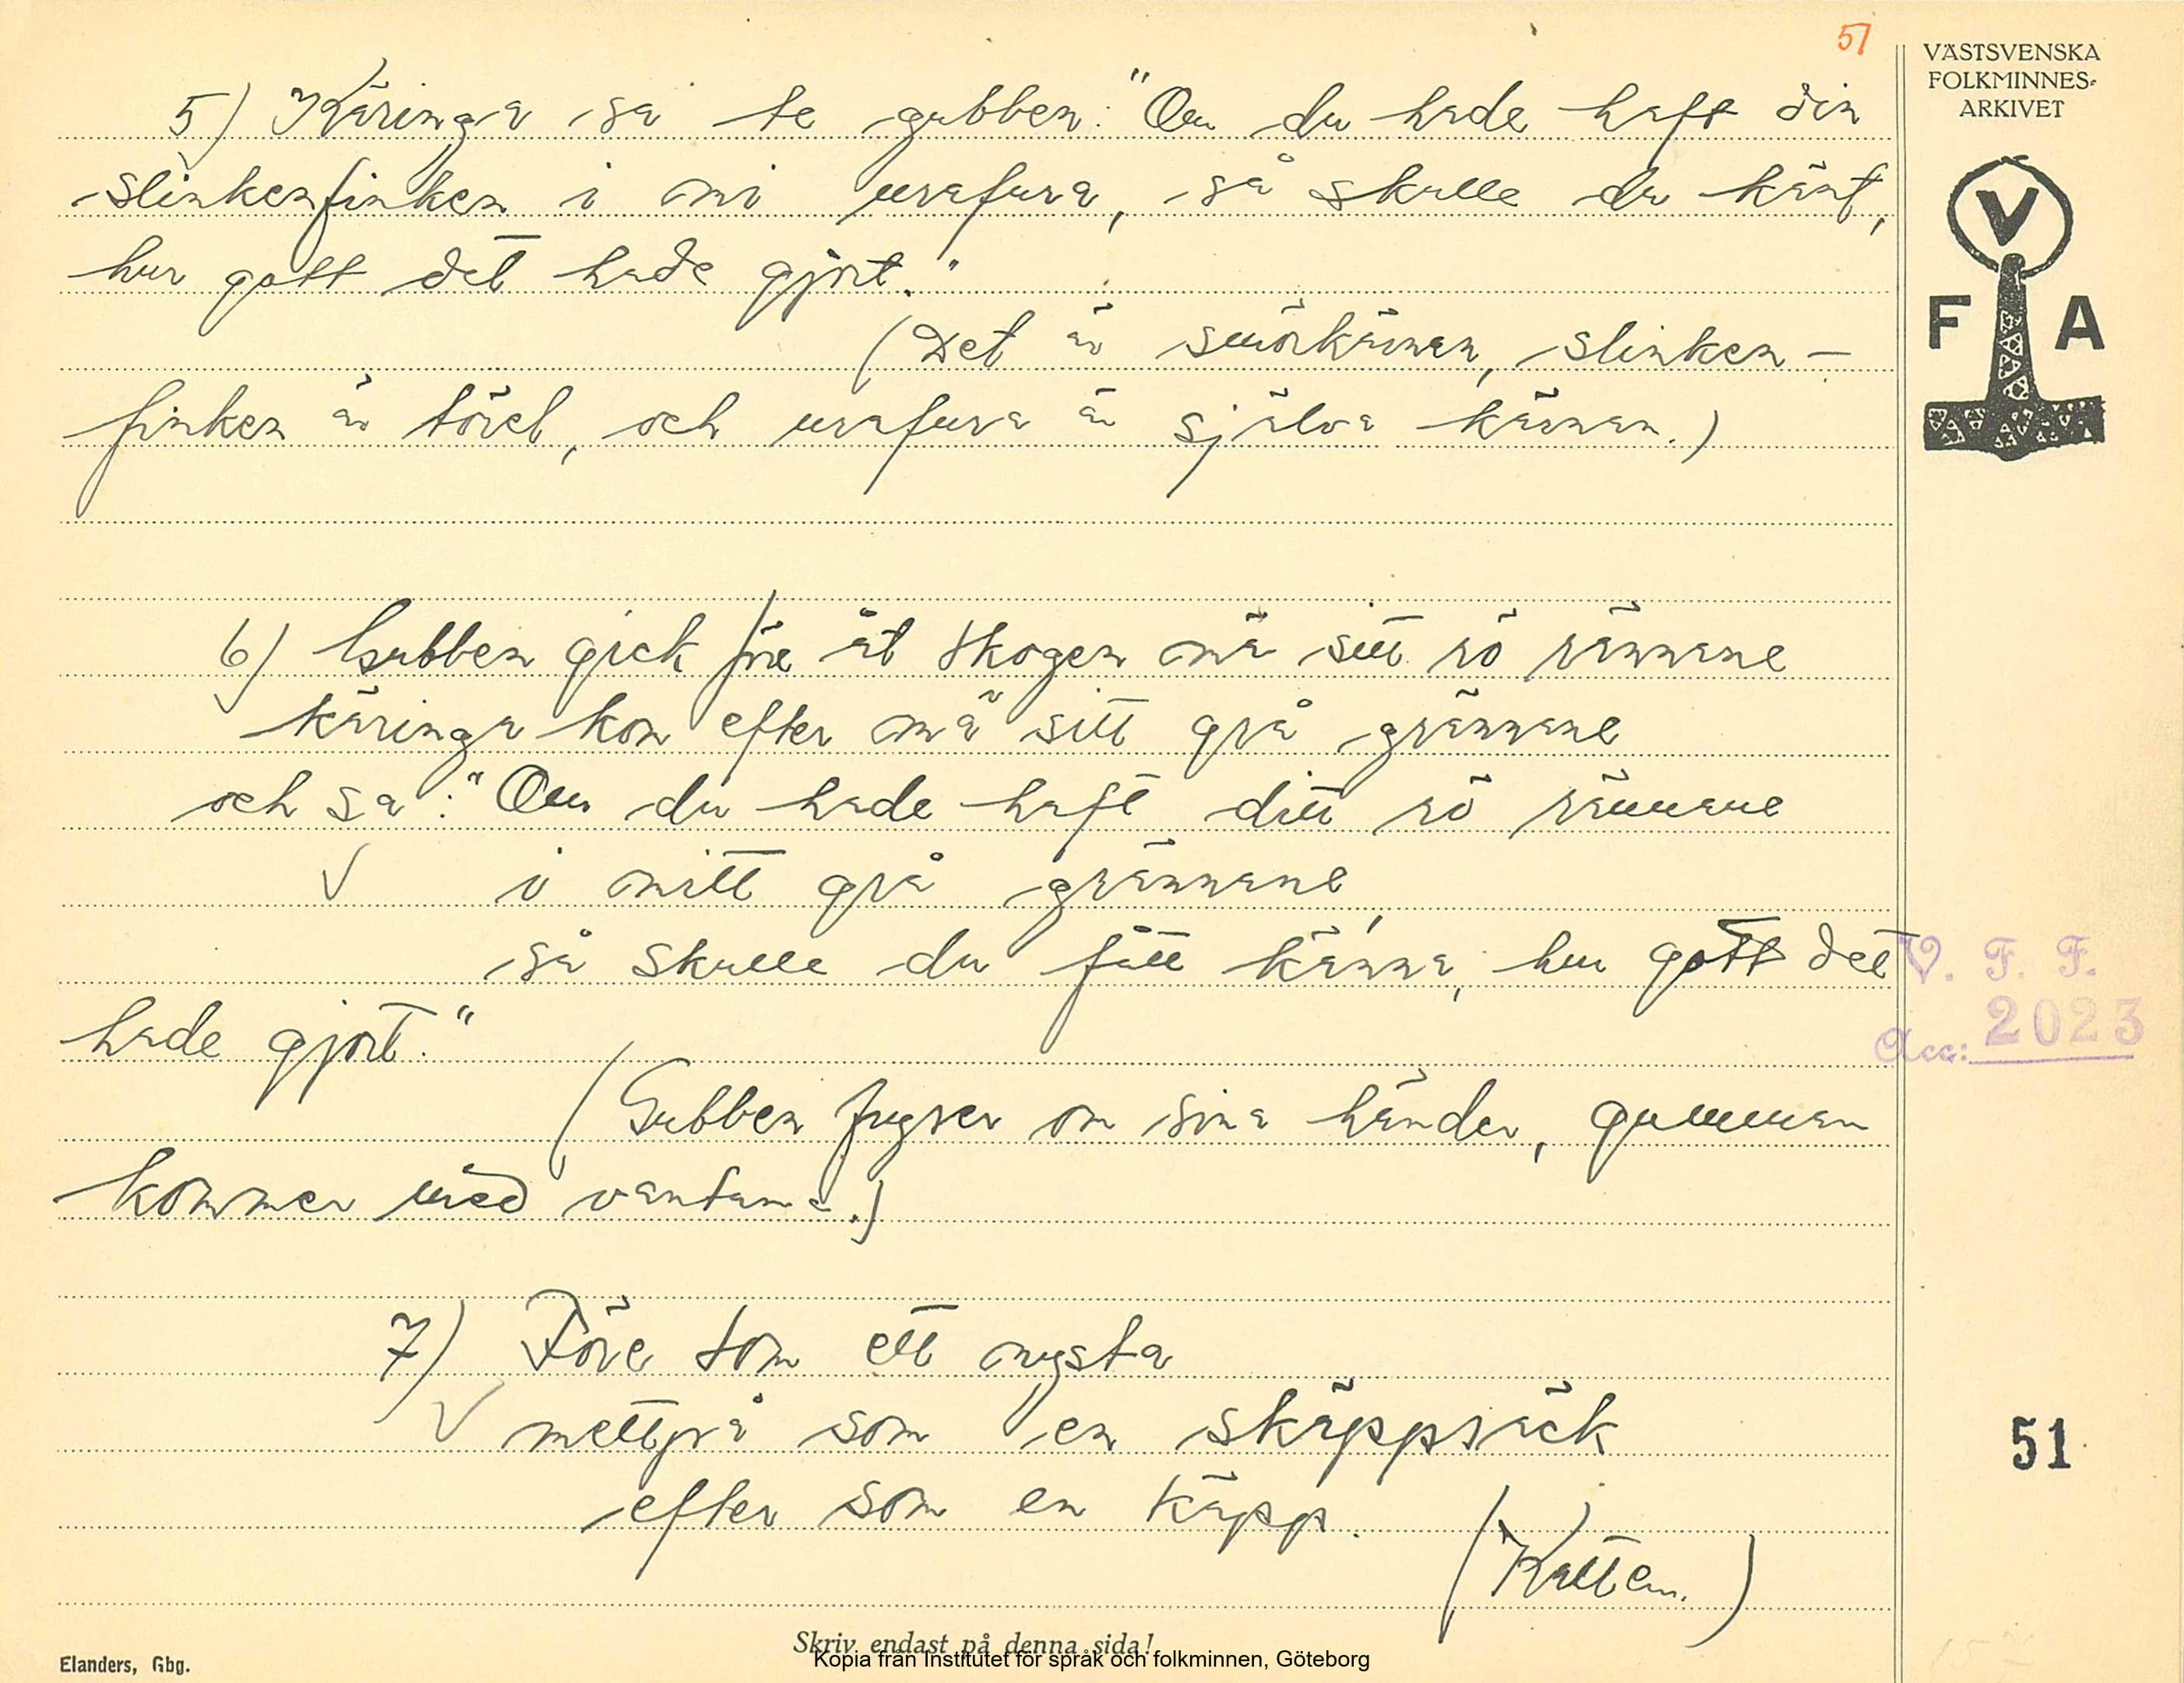 51
VÄSTSVENSKA
FOLKMINNES-
ARKIVET
V
F A
5) Käringa sa te gubben: "Om du hade haft din
slinkenfinken i mi urafura, så skulle du känt,
hur gott det hade gjort."
(Det är smörkärnan, slinken-
finken är törel, och urafura är själva kärnan.)
6) Gubben gick före åt skogen mä sitt rö rännane
käringa kom efter mä sitt grå grännane
och sa: "Om du hade haft ditt rö rännane
i mitt grå grännane,
så skulle du fått känna, hur gott det
hade gjort."
(Gubben fryser om sina händer, gumman
kommer med vantarna.)
7) Före som ett nysta
mettpå som en skäppsäck
efter som en käpp.
(Katten.)
V. F. F.
Acc: 2023
51
Skriv endast på denna sida!
Kopia från Institutet för språk och folkminnen, Göteborg
Elanders, Gbg.